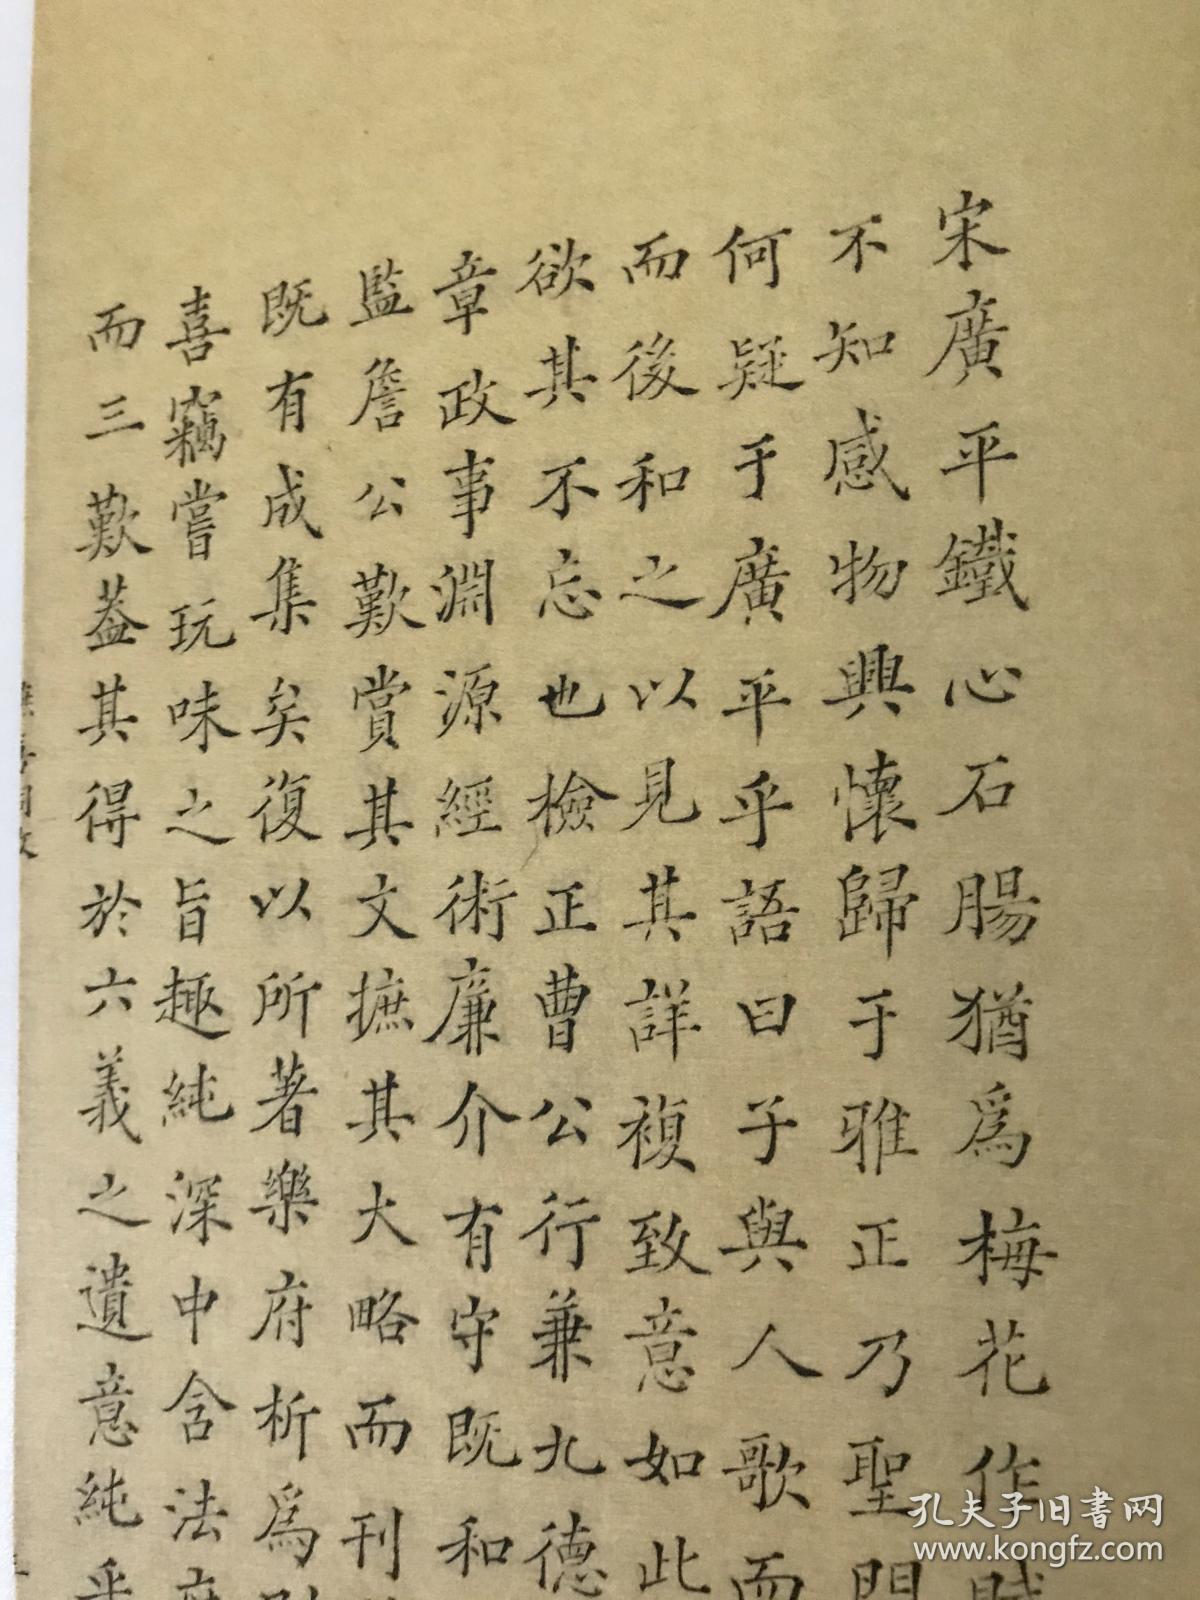 宋廣平鐵心石腸猶爲梅花作賦
不知感物興懷歸于雅正乃聖門
何疑于廣平乎語曰子與人歌而
而後和之以見其詳複致意如此
欲其不忘也檢正曹公行兼九德
章政事淵源經術廉介有守既和
監詹公歎賞其文摭其大略而刊
既有成集矣復以所著樂府析爲
喜竊嘗玩味之旨趣純深中含法度
而三歎葢其得於六義之遺意純乎
孔夫子旧书网
www.kongfz.com